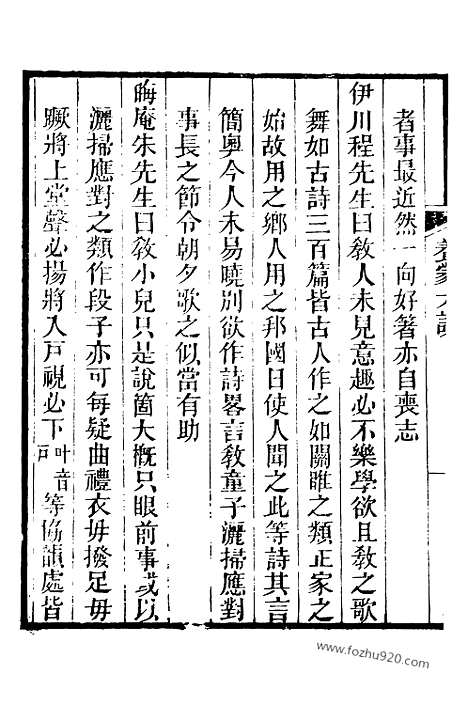 者事最近然一向好著亦自喪志
伊川程先生曰敎人未見意趣必不樂學欲且敎之歌
舞如古詩三百篇皆古人作之如關雎之類正家之
始故用之鄉人用之邦國日使人聞之此等詩其言
簡奧今人未易曉別欲作詩畧言敎童子灑掃應對
事長之節令朝夕歌之似當有助
晦庵朱先生曰敎小兒只是說箇大槪只眼前事或以
灑掃應對之類作段子亦可每疑曲禮衣毋撥足毋
蹶將上堂聲必揚將入戸視必下叶音戸等協韻處皆
www.fozhu920.com